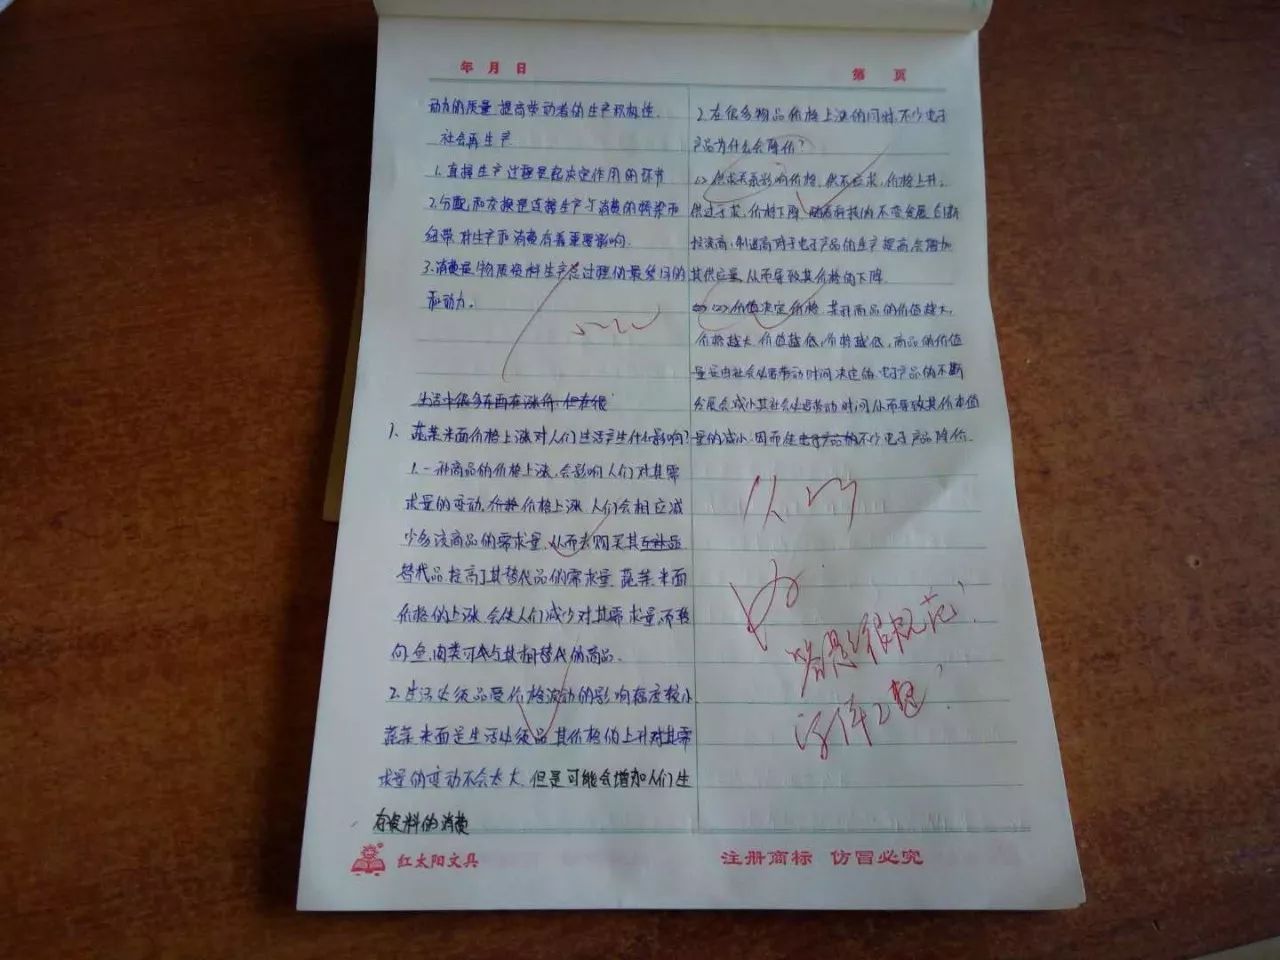 年 月 日
第 页
动力的质量,提高劳动者的生产积极性.
社会再生产
1.直接生产过程是起决定作用的环节
2.分配和交换是连接生产与消费的桥梁和
纽带,对生产和消费有着重要影响.
3.消费是物质资料生产总过程的最终目的
和动力.
生活中很多东西在涨价,但在很
1、蔬菜米面价格上涨对人们生活产生什么影响?
1.一种商品的价格上涨,会影响人们对其需
求量的变动,价格价格上涨,人们会相应减
少多该商品的需求量,从而去购买其互补品
替代品,提高了其替代品的需求量.蔬菜,米面
价格的上涨,会使人们减少对其需求量,而转
向鱼,肉类可以与其相替代的商品.
2.生活必须品受价格波动的影响程度较小
蔬菜米面是生活必须品,其价格的上升对其需
求量的变动不会太大,但是可能会增加人们生
存资料的消费
2.在很多物品价格上涨的同时,不少电子
产品为什么会降价?
(1)供求关系影响价格,供不应求,价格上升;
供过于求,价格下降.随着科技的不变发展创新
投资商,制造商对于电子产品的生产提高会增加
其供应量,从而导致其价格的下降.
(2)价值决定价格,某种商品的价值越大,
价格越大,价值越低,价格越低,商品的价值
量是由社会必要劳动时间决定的,电子产品的不断
发展会减小其社会必要劳动时间从而导致其价值
量的减小,因而使电子产品的不少电子产品降价.
答题很规范!
红太阳文具
注册商标 仿冒必究